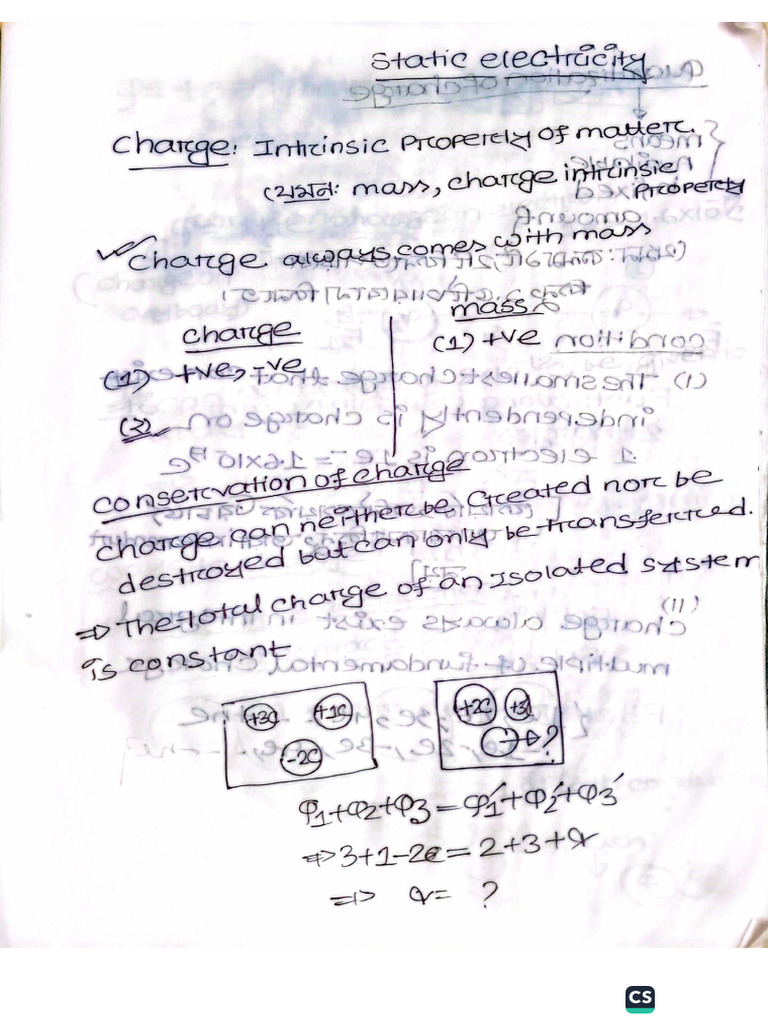 Static electricity
Charge: Intrinsic Property of matter.
যেমনঃ mass, charge intrinsic
Property
Charge always comes with mass
Charge
mass
(1) +ve, -ve
(1) +ve
(২)
Conservation of charge
Charge can neither be created nor be
destroyed but can only be transferred.
⇒ The total charge of an isolated system
is constant
+3C +1C
-2C
+2C +3
→ ?
Q1+Q2+Q3 = Q1'+Q2'+Q3'
⇒ 3+1-2 = 2+3+x
⇒ x = ?
CS